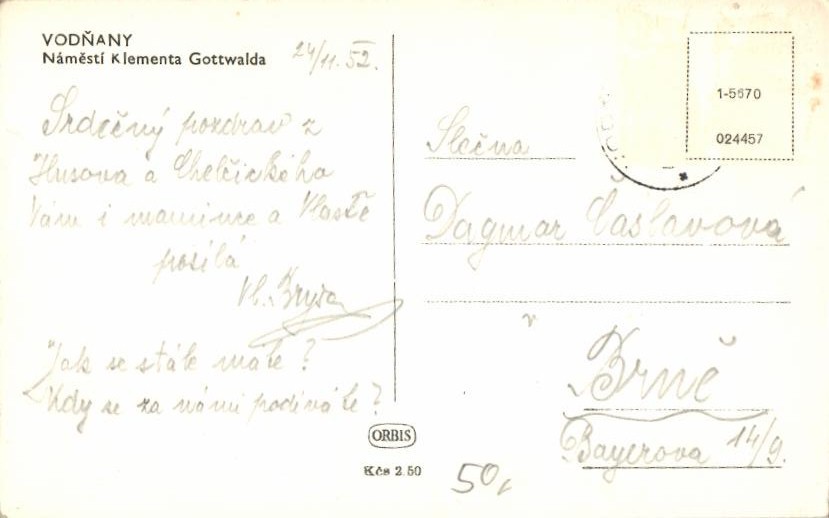 VODŇANY
Náměstí Klementa Gottwalda
24/11. 52.
Srdečný pozdrav z
Husova a Chelčického
Vám i mamince a Vlastě
posílá
Vl.
Jak se stále máte?
Kdy se za námi podíváte?
ORBIS
Kčs 2.50
50,
1-5670
024457
Slečna
Dagmar Čáslavová
v
Brně
Bayerova 14/9.